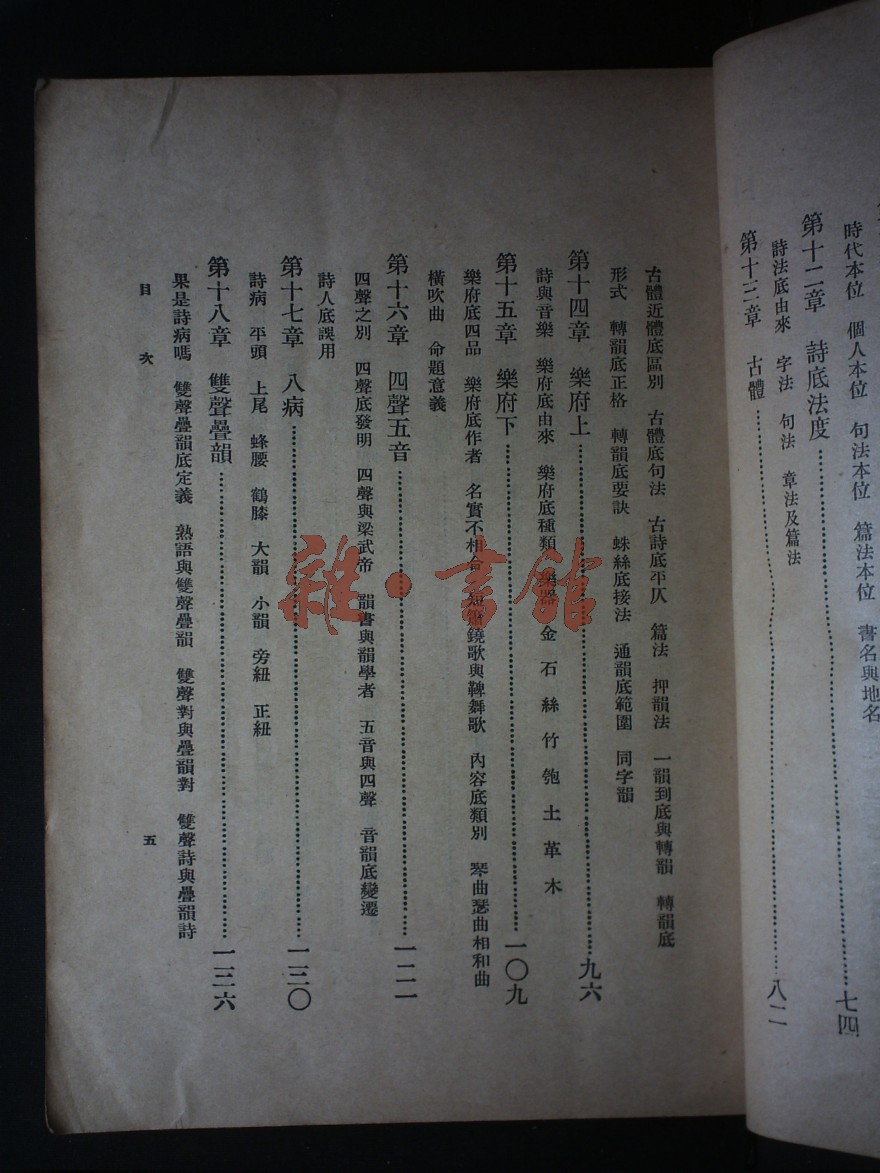 時代本位　個人本位　句法本位　篇法本位　書名與地名
第十二章　詩底法度……七四
詩法底由來　字法　句法　章法及篇法
第十三章　古體……八二
古體近體底區別　古體底句法　古詩底平仄　篇法　押韻法　一韻到底與轉韻　轉韻底
形式　轉韻底正格　轉韻底要訣　蛛絲底接法　通韻底範圍　同字韻
第十四章　樂府上……九六
詩與音樂　樂府底由來　樂府底種類　樂器　金　石　絲　竹　匏　土　革　木
第十五章　樂府下……一〇九
樂府底四品　樂府底作者　名實不相合　短簫鐃歌與鞞舞歌　內容底類別　琴曲瑟曲相和曲
橫吹曲　命題意義
第十六章　四聲五音……一二一
四聲之別　四聲底發明　四聲與梁武帝　韻書與韻學者　五音與四聲　音韻底變遷
詩人底誤用
第十七章　八病……一三〇
詩病　平頭　上尾　蜂腰　鶴膝　大韻　小韻　旁紐　正紐
第十八章　雙聲疊韻……一三六
果是詩病嗎　雙聲疊韻底定義　熟語與雙聲疊韻　雙聲對與疊韻對　雙聲詩與疊韻詩
目次　五
雜·書館